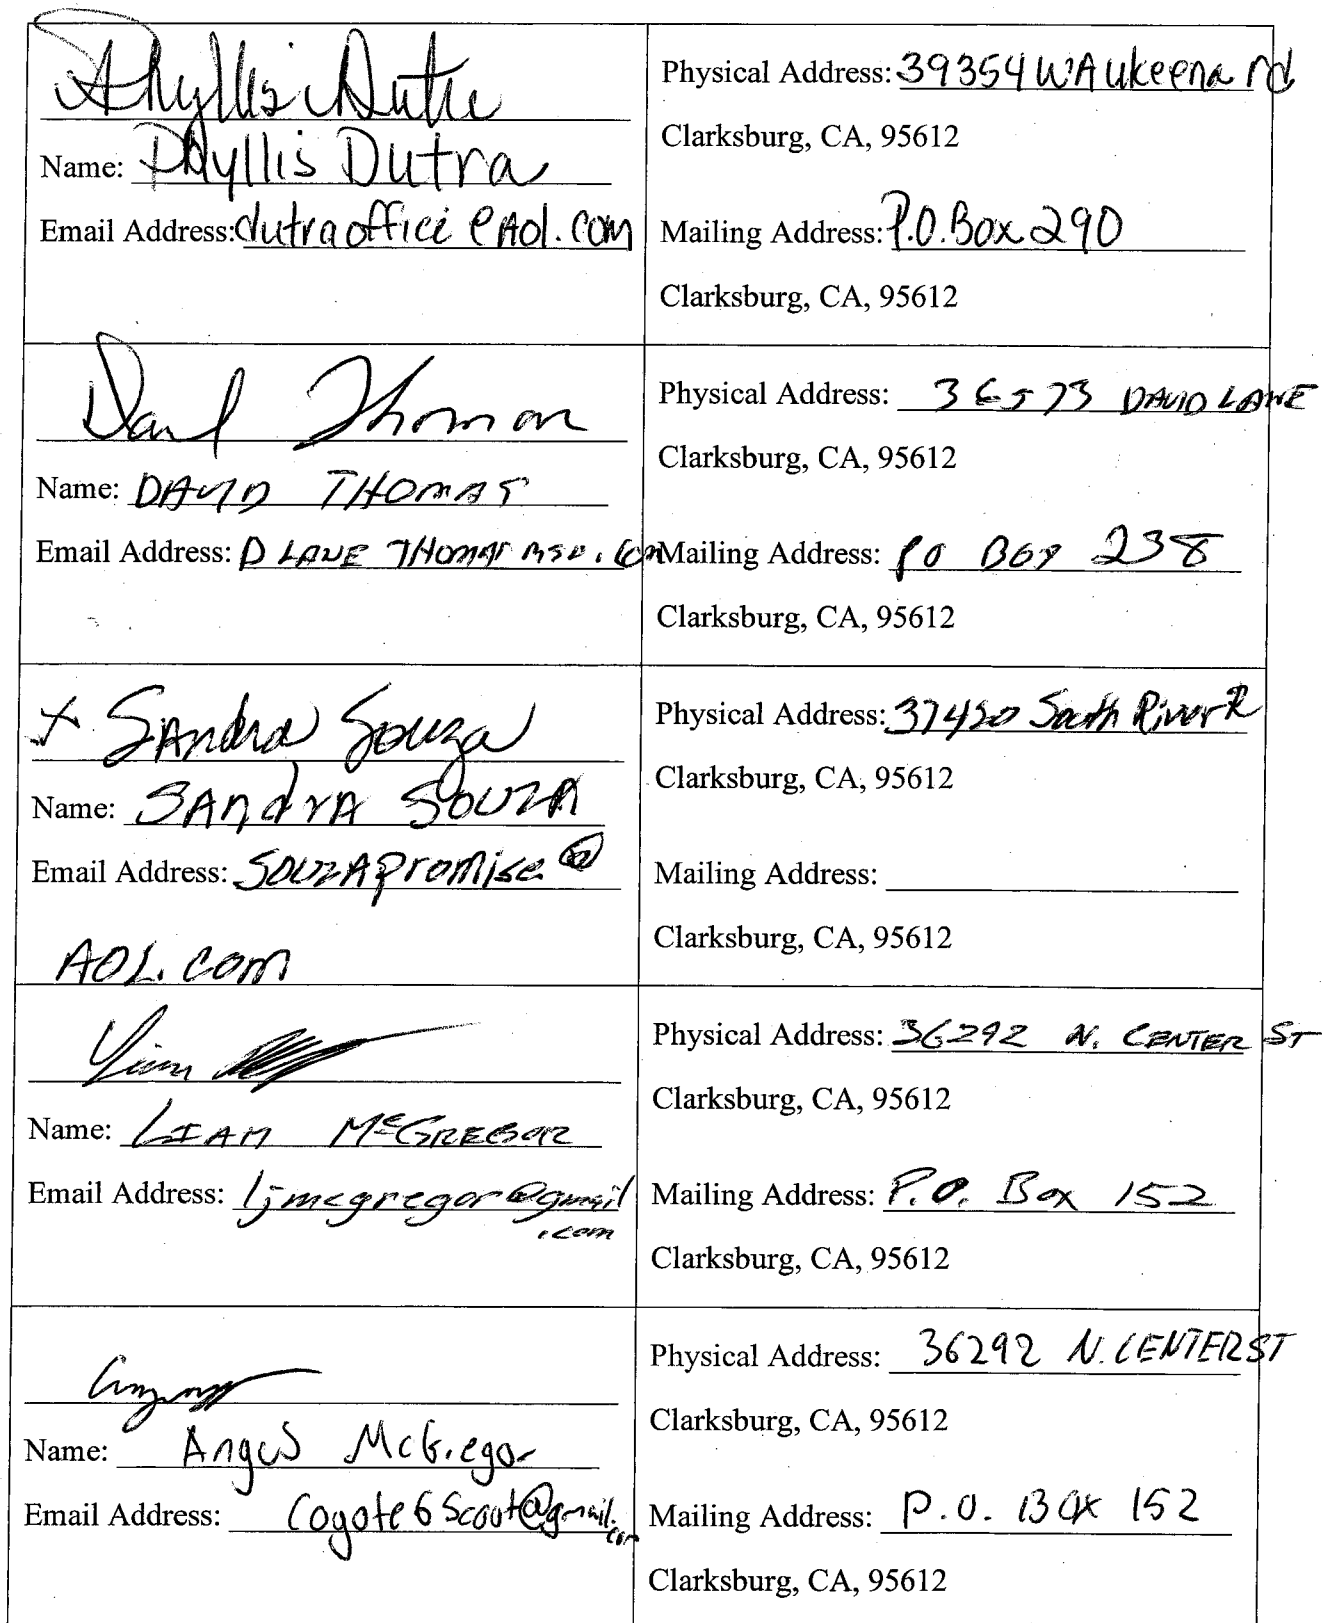 Phyllis Dutra
Name: Phyllis Dutra
Email Address: dutraoffice@Aol.com
Physical Address: 39354 WAukeena rd
Clarksburg, CA, 95612
Mailing Address: P.O. Box 290
Clarksburg, CA, 95612
David Thomas
Name: DAVID THOMAS
Email Address: D LANE THOMAS MSN.COM
Physical Address: 36573 DAVID LANE
Clarksburg, CA, 95612
Mailing Address: PO BOX 238
Clarksburg, CA, 95612
X SAndra Souza
Name: SAndrA SOUZA
Email Address: SOUZAPromise@
AOL.com
Physical Address: 37450 South River R
Clarksburg, CA, 95612
Mailing Address:
Clarksburg, CA, 95612
Liam
Name: LIAM McGREGOR
Email Address: ljmcgregor@gmail
.com
Physical Address: 36292 N. CENTER ST
Clarksburg, CA, 95612
Mailing Address: P.O. Box 152
Clarksburg, CA, 95612
Name: Angus McGregor
Email Address: Coyote6Scout@gmail.
com
Physical Address: 36292 N. CENTER ST
Clarksburg, CA, 95612
Mailing Address: P.O. BOX 152
Clarksburg, CA, 95612